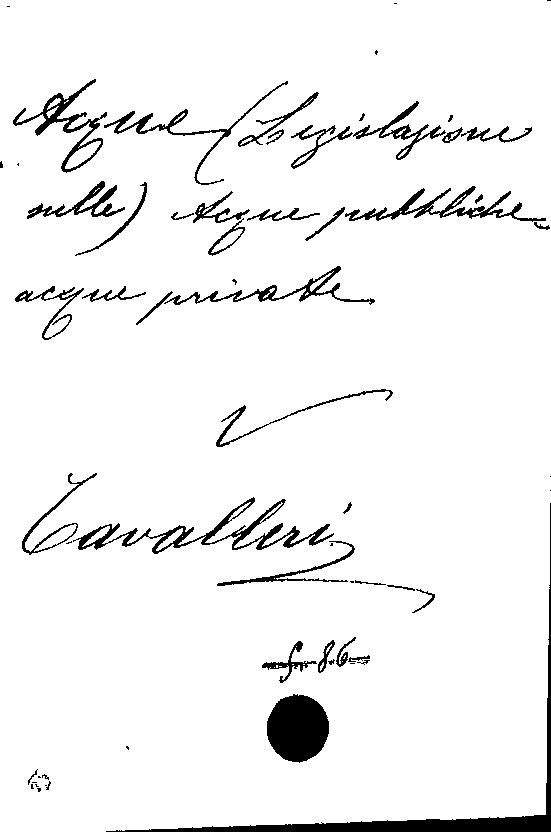 Acque (Legislazione
sulle) Acque pubbliche
acque private
V
Cavalleri